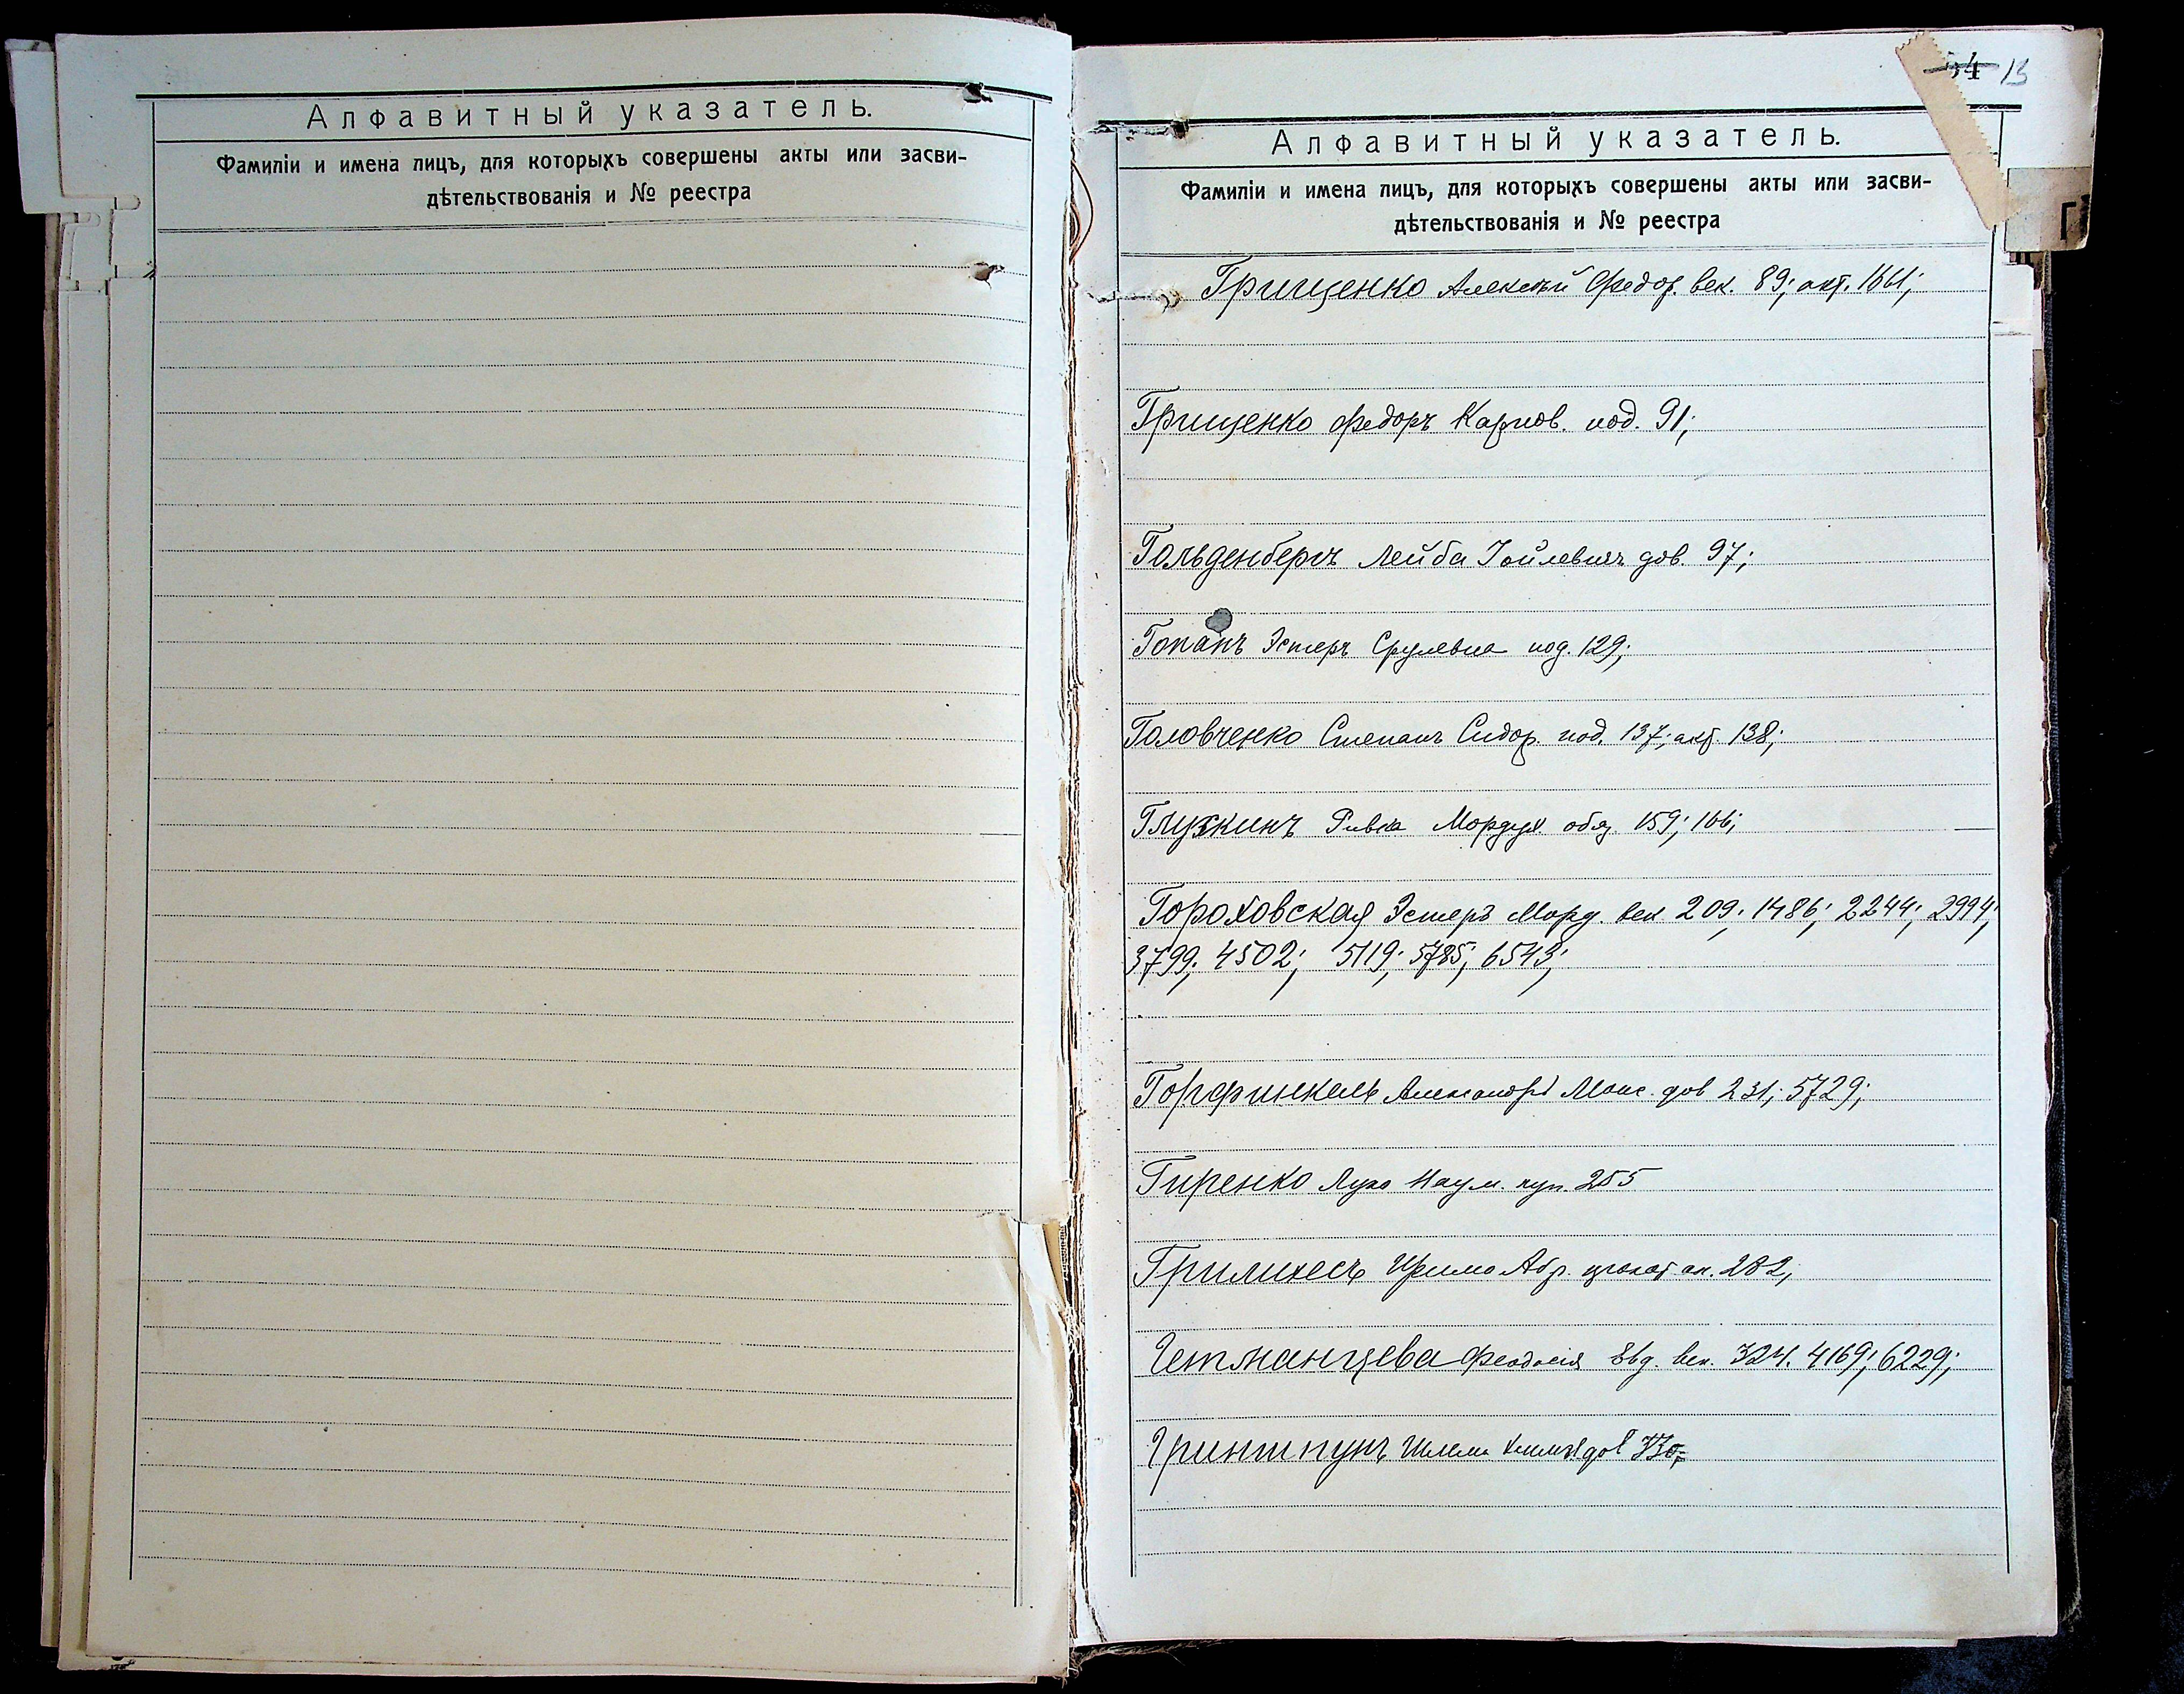 Алфавитный указатель.
Фамиліи и имена лицъ, для которыхъ совершены акты или засви-
дѣтельствованія и № реестра
54 13
Алфавитный указатель.
Фамиліи и имена лицъ, для которыхъ совершены акты или засви-
дѣтельствованія и № реестра
Г
Грищенко Алексѣй Федор. век. 89; акт. 1661;
Грищенко Федоръ Карпов. под. 91;
Гольденбергъ Лейба Іойлевичъ дов. 97;
Гопанъ Эстеръ Срулевна под. 129;
Головченко Степанъ Сидор. под. 137; акт. 138;
Глускинъ Ривка Мордух. обяз. 159; 166;
Гороховская Эстеръ Морд. век 209; 1486; 2244; 2994;
3799; 4502; 5119; 5785; 6543;
Горфинкель Александръ Моис. дов 231; 5729;
Гиренко Лука Наум. куп. 255
Грилихесъ Абр. 282;
Гетманцева Феодосія Евд. век. 324. 4169; 6229;
Гриншпунъ дов